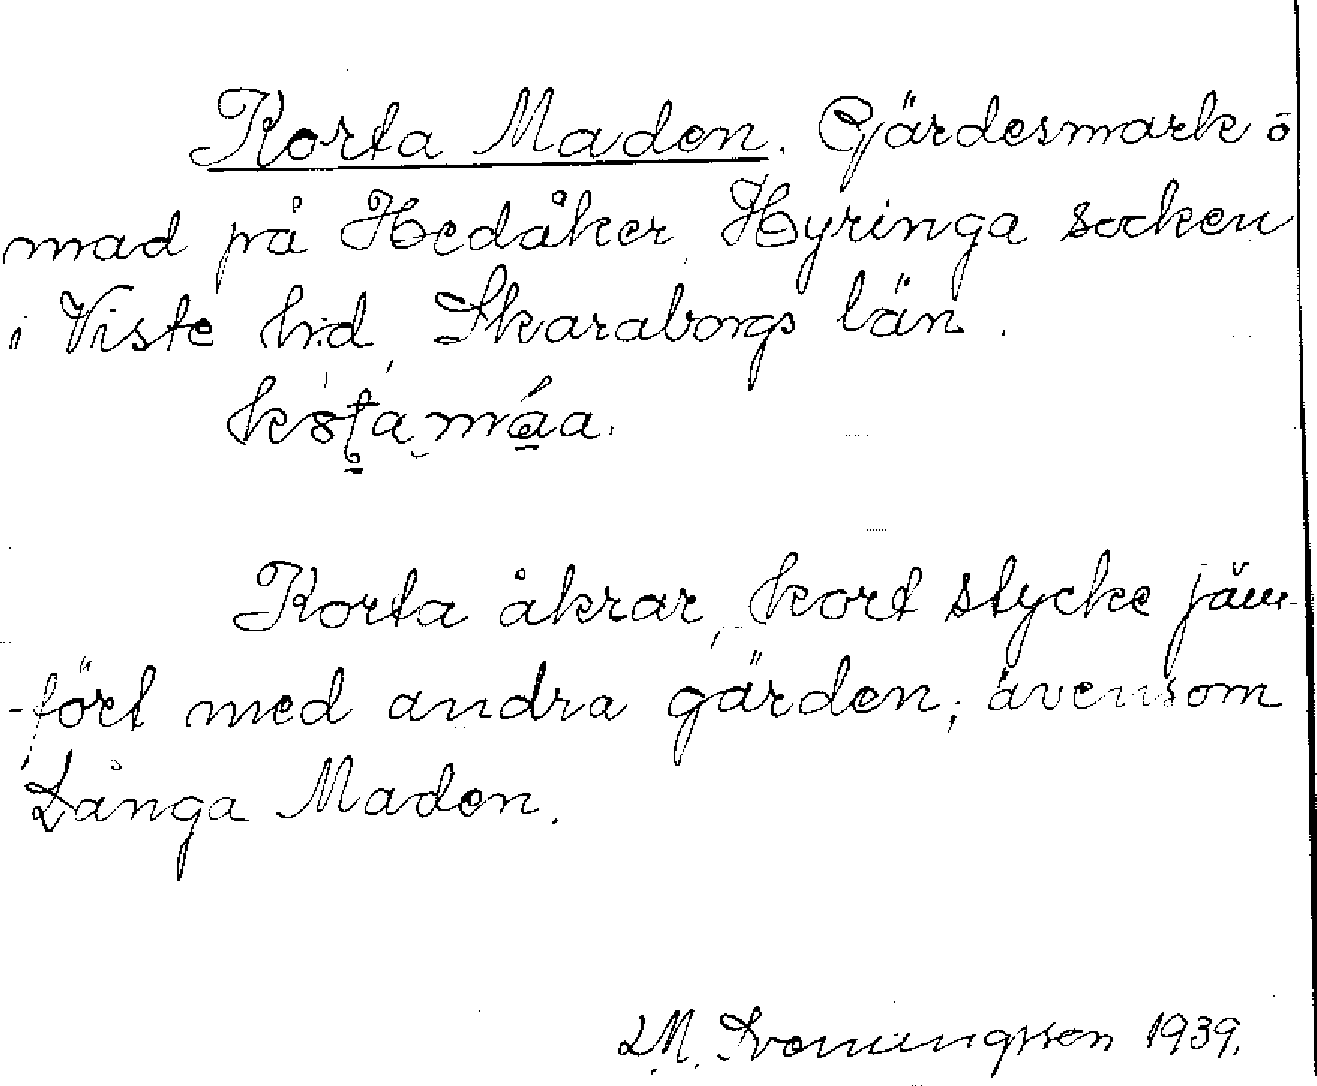 Korta Maden. Gärdesmark o
mad på Hedåker, Hyringa socken
i Viste hd, Skaraborgs län.
Korta åkrar, kort stycke jäm-
-fört med andra gärden; ävensom
Långa Maden.
LM. Svenungsson 1939.